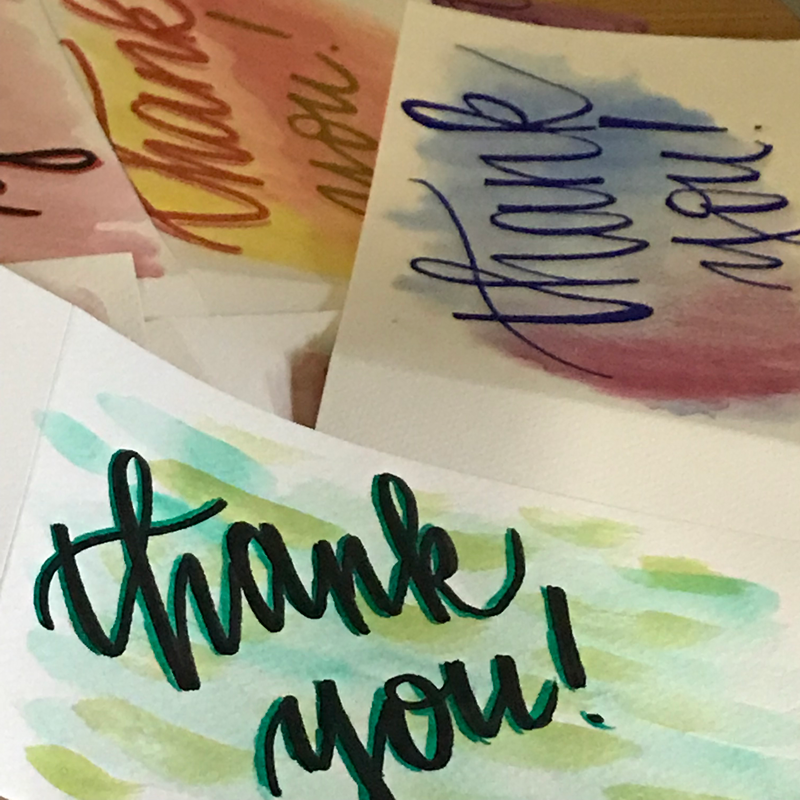 thank
you!
thank
you!
thank
you!